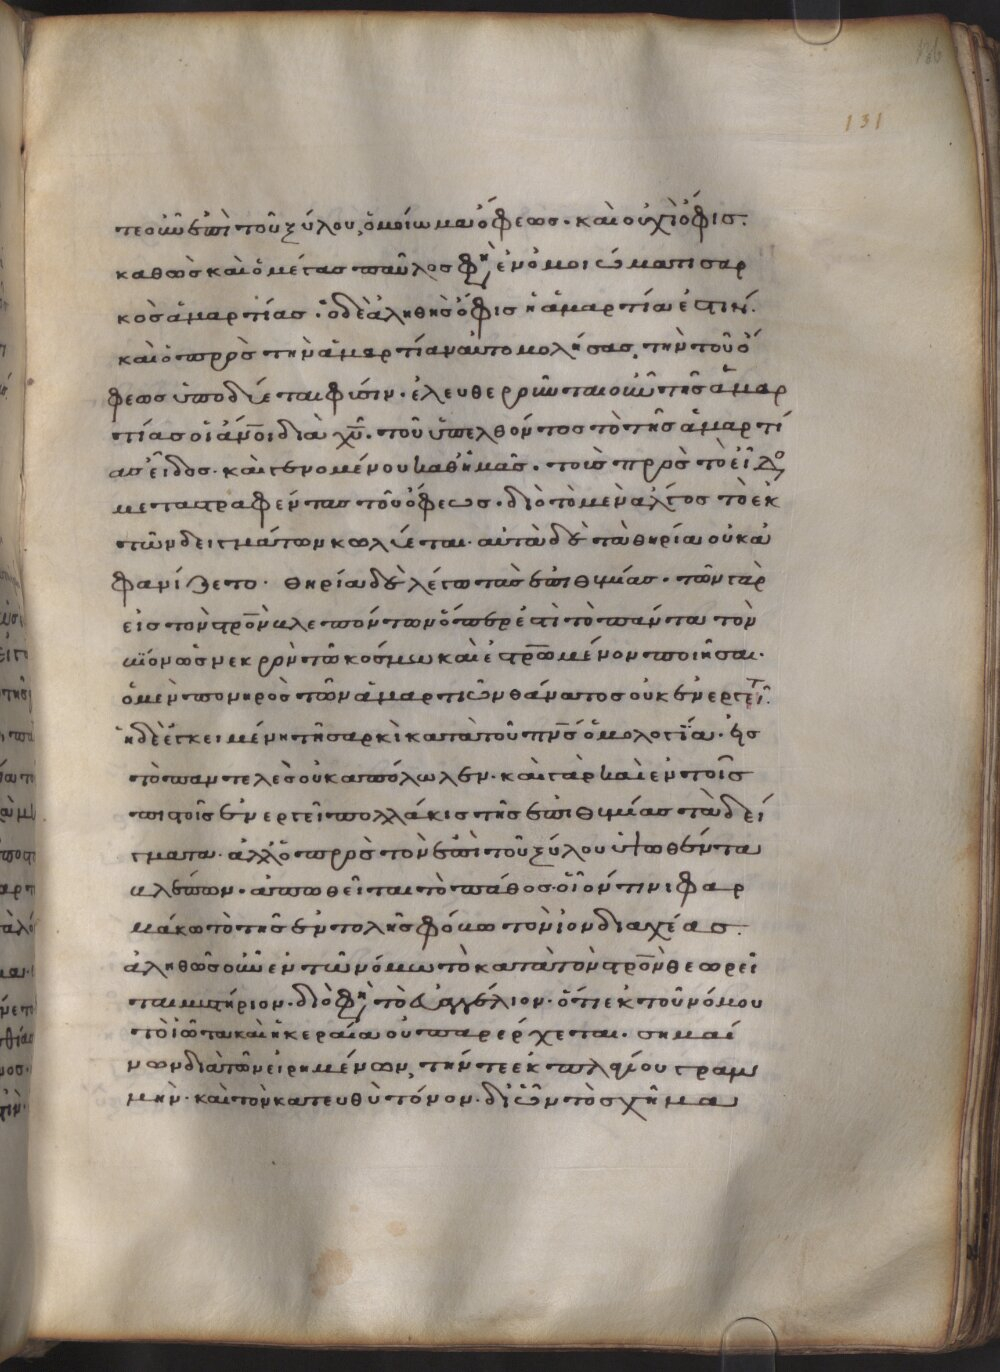 131
τε οὖν ἐπὶ τοῦ ξύλου, ὁμοίωμα ὄφεως· καὶ οὐχὶ ὄφις.
καθὼς καὶ ὁ μέγας παῦλος φη, ἐν ὁμοιώματι σαρ
κὸς ἁμαρτίας. ὁ δὲ ἀληθὴς ὄφις ἡ ἁμαρτία ἐστίν.
καὶ ὁ πρὸς τὴν ἁμαρτίαν αὐτομολήσας, τὴν τοῦ ὄ
φεως ὑποδύεται φύσιν. ἐλευθεροῦνται οὖν τῆς ἁμαρ
τίας οἱ ἄνοι διὰ χυ. τοῦ ὑπελθόντος τὸ τῆς ἁμαρτί
ας εἶδος. καὶ γενομένου καθ ἡμᾶς. τοὺς πρὸς τὸ εἶδο
μεταστραφέντας τοῦ ὄφεως. διὸ τὸ μὲν ἄλγος τὸ ἐκ
τῶν δειγμάτων κωλύεται. αὐτὰ δὲ τὰ θηρία οὐκ ἀ
φανίζετο. θηρία δὲ λέγω τὰς ἐπιθυμίας. τῶν γὰρ
εἰς τὸν στρον βλεπόντων ὅπερ ἐστὶ τὸ πάντα τὸν
βίον ὡς νεκρὸν τῶ κόσμω καὶ ἐστρωμένον ποιῆσαι.
ὁ μὲν πονηρὸς τῶν ἁμαρτιῶν θάνατος οὐκ ἐνεργεῖ.
ἡ δὲ ἐγκειμένη τῆ σαρκὶ κατὰ τοῦ πνς ὁμολογία. εἰς
τὸ παντελὲς οὐκ ἀπόλωλεν. καὶ γὰρ καὶ ἐν τοῖς
πιστοῖς ἐνεργεῖ πολλάκις τῆς ἐπιθυμίας τὰ δεί
γματα. ἀλλ ὁ πρὸς τὸν ἐπὶ τοῦ ξύλου ὑψωθέντα
βλέπων. ἀπωθεῖται τὸ πάθος. οἷόν τινι φαρ
μάκω τὸ τῆς ἐντολῆς φόβω τὸν ἰὸν διαχέας.
ἀληθῶς οὖν ἐν τῶ νόμω τὸ κατὰ τὸν στρον θεωρεῖ
ται μυστήριον. διὸ φη, τὸ εὐαγγέλιον. ὅτι ἐκ τοῦ νόμου
τὸ ἰῶτα καὶ ἡ κεραία οὐ παρέρχεται. σημαί
νων διὰ τῶν εἰρημένων, τήν τε ἐκ πλαγίου γραμ
μὴν. καὶ τὸν κατευθὺ τόνον. δι ὧν τὸ σχῆμα